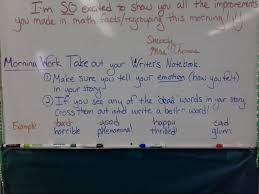 I'm SO excited to show you all the improvements
you made in math facts/regrouping this morning!
Sincerely,
Mrs.
Morning Work Take out your Writer's Notebook.
① Make sure you tell your emotion (how you felt)
in your story.
② If you see any of the "dead" words in your story
Cross them out and write a better word!
Example: bad good happy sad
horrible phenomenal thrilled glum